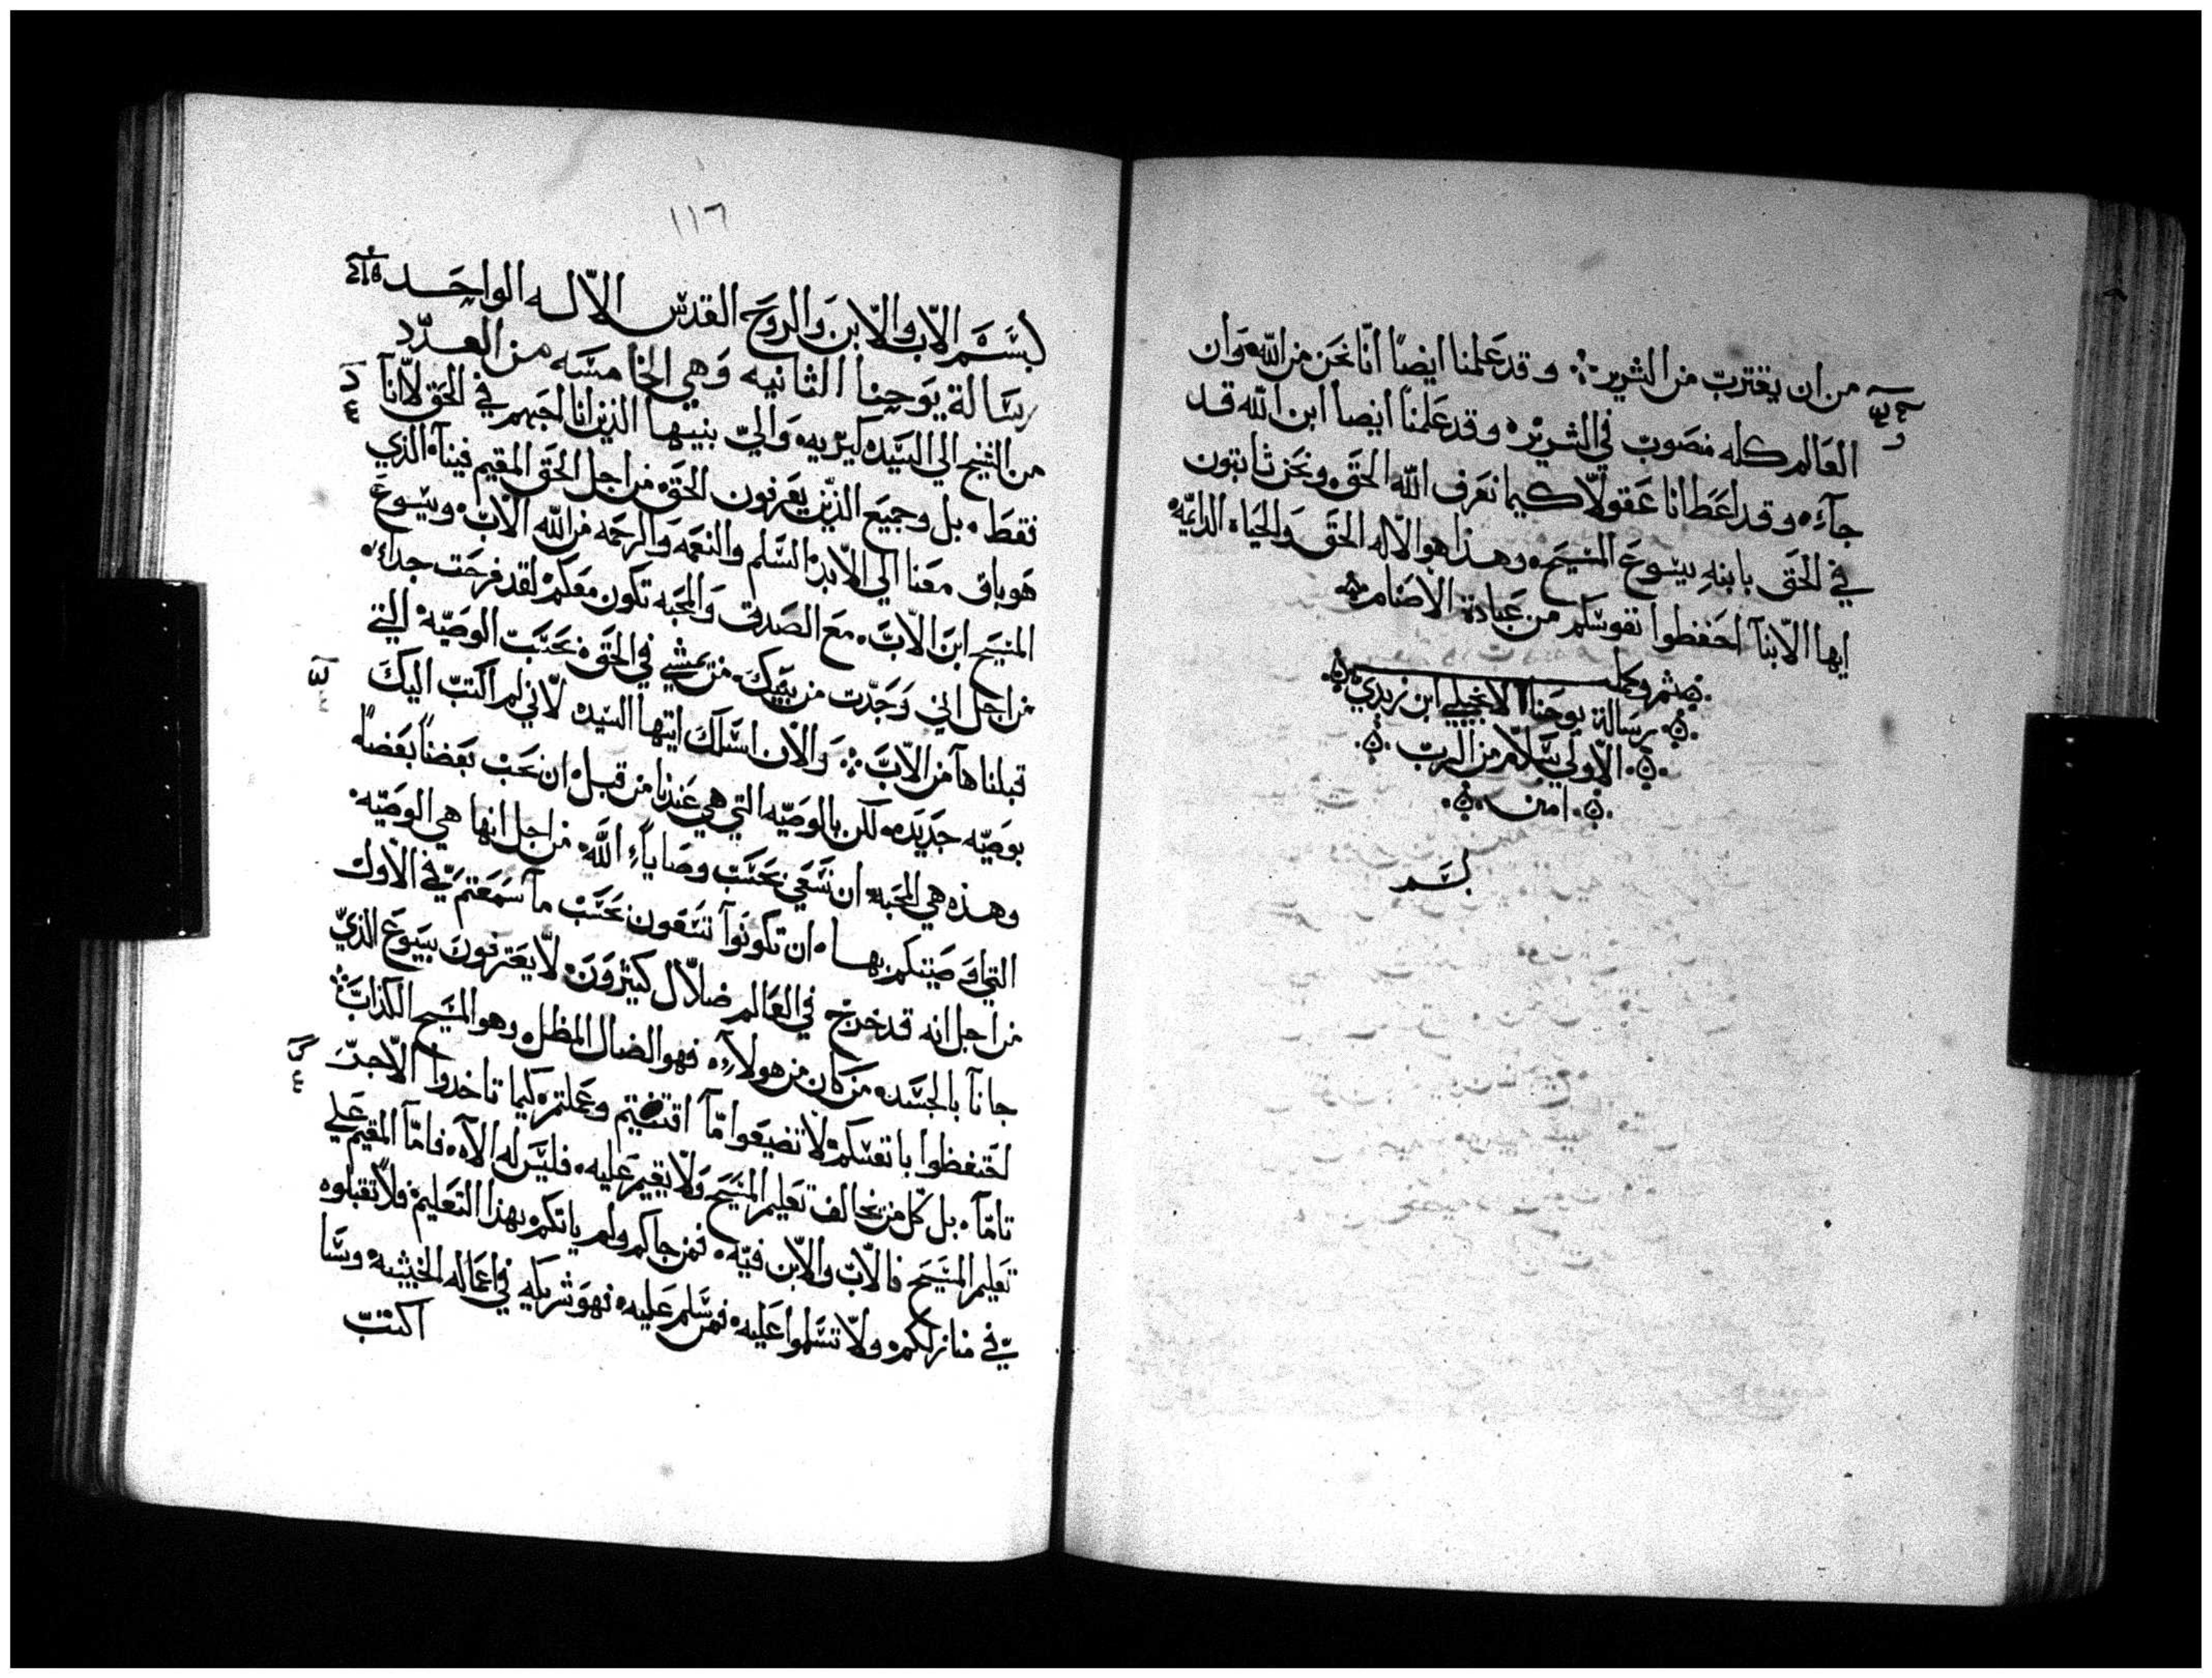 من ان يغترب من الشرير ٠:٠ وقد علمنا ايضاً انّا نحن من الله وان
العالم كله منصوب في الشرير ٠ وقد علمنا ايضا ابن الله قد
جآء ٠ وقد اعطانا عقولاً كيما نعرف الله الحق ٠ ونحن ثابتون
في الحق بابنهِ يسوع المسيح ٠ وهذا هو الاله الحق والحياه الدايمه ٠
ايها الابنآ احفظوا نفوسكم من عبادة الاصنام
تم وكمل
رسالة يوحنا الانجيلي ابن زبدي
الاولي بسلام من الرب
امين
بسم
١١٦
بسم الاب والابن والروح القدس الاله الواحد
رسالة يوحنا الثانيه وهي الخامسه من العدد
من الشيخ الي السيده كيريه ٠ والي بنيها الذين انا احبهم في الحق لا انا
فقط ٠ بل وجميع الذين يعرفون الحق ٠ من اجل الحق المقيم فينآ ٠ الذي
هو باق معنا الي الابد ٠ السلم والنعمه والرحمه من الله الاب ٠ ويسوع
المسيح ابن الاب ٠ مع الصدق والمحبه تكون معكم ٠ لقد فرحت جدآ
من اجل اني وجدت من بنيك ٠ من يمشي في الحق ٠ نحسب الوصيه ٠ التي
قبلناهآ من الاب ٠:٠ والان اسلك ايتها السيده لاني لم اكتب اليك
بوصيه جديده ٠ لكن بالوصيه التي هي عندنا من قبل ٠ ان نحب بعضنا بعضا
وهذه هي المحبه ٠ ان نسعي نحسب وصاياء الله ٠ من اجل انها هي الوصيه ٠
التي اوصيتكم بها ٠ ان تكونوآ تسعون نحسب مآ سمعتم في الاول
من اجل انه قد خرج في العالم ضلال كثيرون ٠ لا يعترفون بيسوع الذي
جانآ بالجسد ٠ من كان من هولآء ٠ فهو الضال المظل وهو المسيح الكذاب
احتفظوا بانفسكم ٠ لا تضيعوا مآ اقتنيتم وعملتم ٠ كيما تاخدوا الاجر
تامآ ٠ بل كل من يخالف تعليم المسيح ولا يقيم عليه ٠ فليس له الاه ٠ فامآ المقيم علي
تعليم المسيح فالاب والابن فيه ٠ فمن جاكم ولم ياتكم بهذا التعليم ٠ فلا تقبلوه
في منازلكم ٠ ولا تسلموا عليه ٠ فمن سلم عليه ٠ فهو شريكه في اعماله الخبيثه ٠ وسا
اكتب